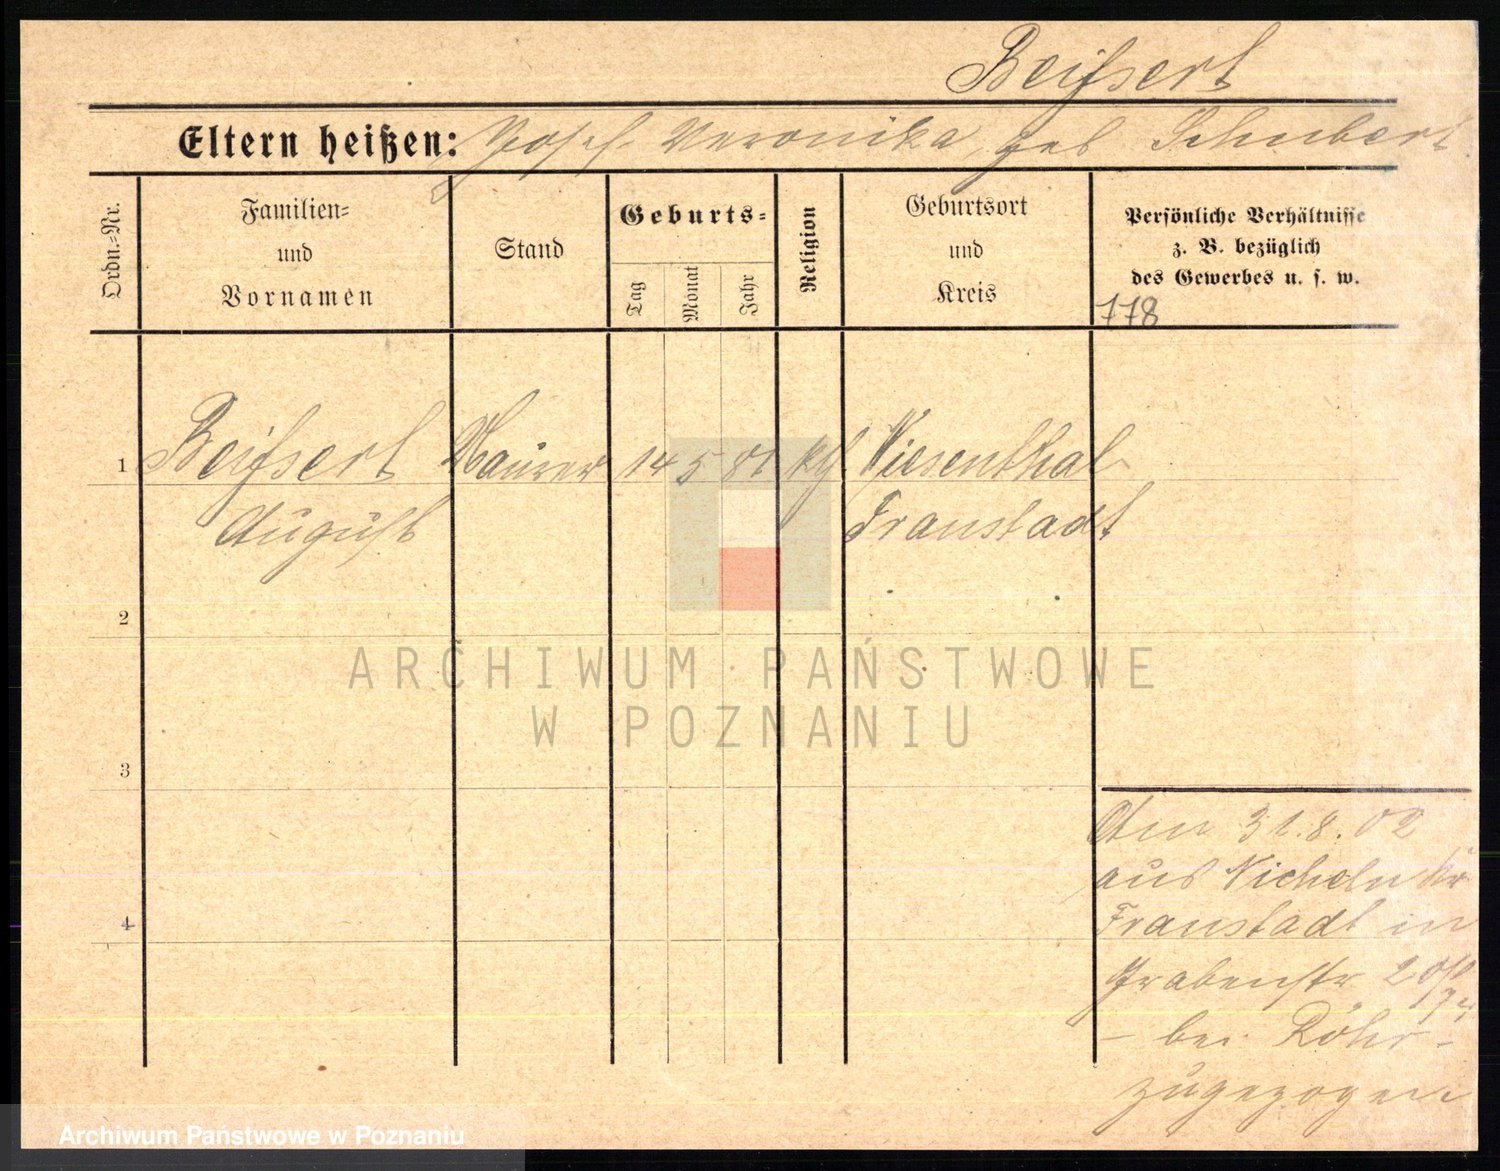 Beifsert
Eltern heißen: Josef Veronika, geb Schubert
Ordn.-Nr.
Familien-
und
Vornamen
Stand
Geburts-
Tag
Monat
Jahr
Religion
Geburtsort
und
Kreis
Persönliche Verhältnisse
z. B. bezüglich
des Gewerbes u. s. w.
778
1 Beifsert Maurer 14 5 81 kth Wiesenthal
August Fraustadt
2
ARCHIWUM PAŃSTWOWE
W POZNANIU
3
Am 31.8.02
aus Nicheln Kr
4 Fraustadt in
Grabenstr 20
- bei Röhr -
zugezogen
Archiwum Państwowe w Poznaniu